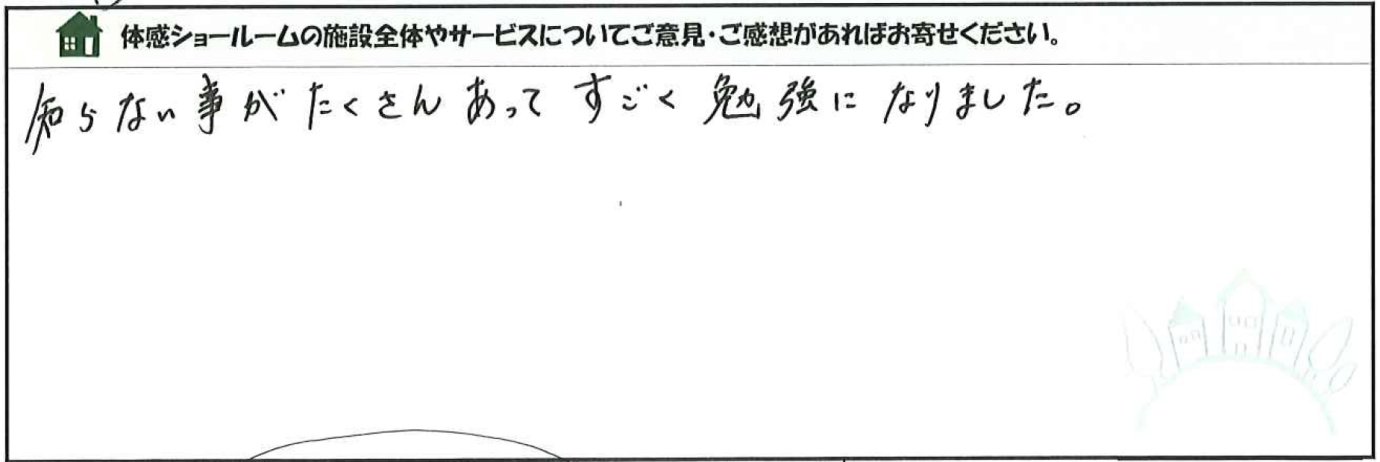 体感ショールームの施設全体やサービスについてご意見・ご感想があればお寄せください。
知らない事がたくさんあってすごく勉強になりました。